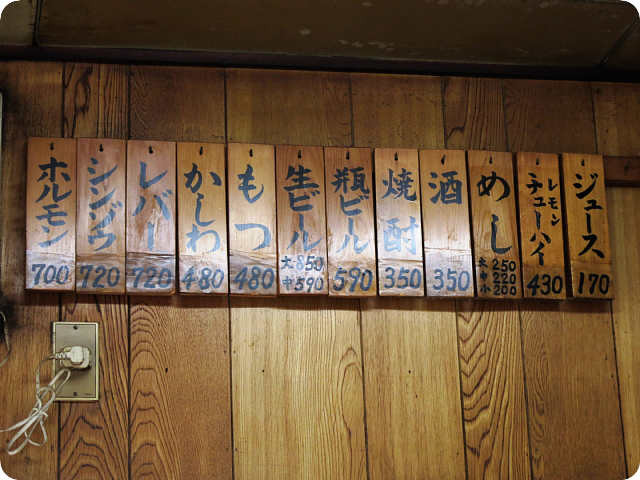 ホルモン
700
シンゾウ
720
レバー
720
かしわ
480
もつ
480
生ビール
大850
中590
瓶ビール
590
焼酎
350
酒
350
めし
大250
中220
小200
レモン
チューハイ
430
ジュース
170